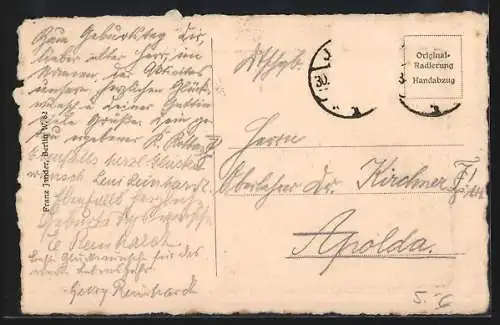 Zum Geburtstag Dir,
lieber alter Herr, im
Namen der Aktivitas
unsere herzlichen Glück-
wünsche. Deiner Gattin
viele Grüße. Dein ge-
ebener K.
Ebenfalls herzl. Glück-
wunsch Leni Reinhardt.
Ebenfalls herzlich
Geburtstag
E. Reinhardt.
Glückwünsche für das
neue Lebensjahr
Georg Reinhardt
Franz Jander, Berlin W. 62
Original-
Radierung
Handabzug
Herrn
Oberlehrer Dr. Kirchner
Apolda.
5.-C